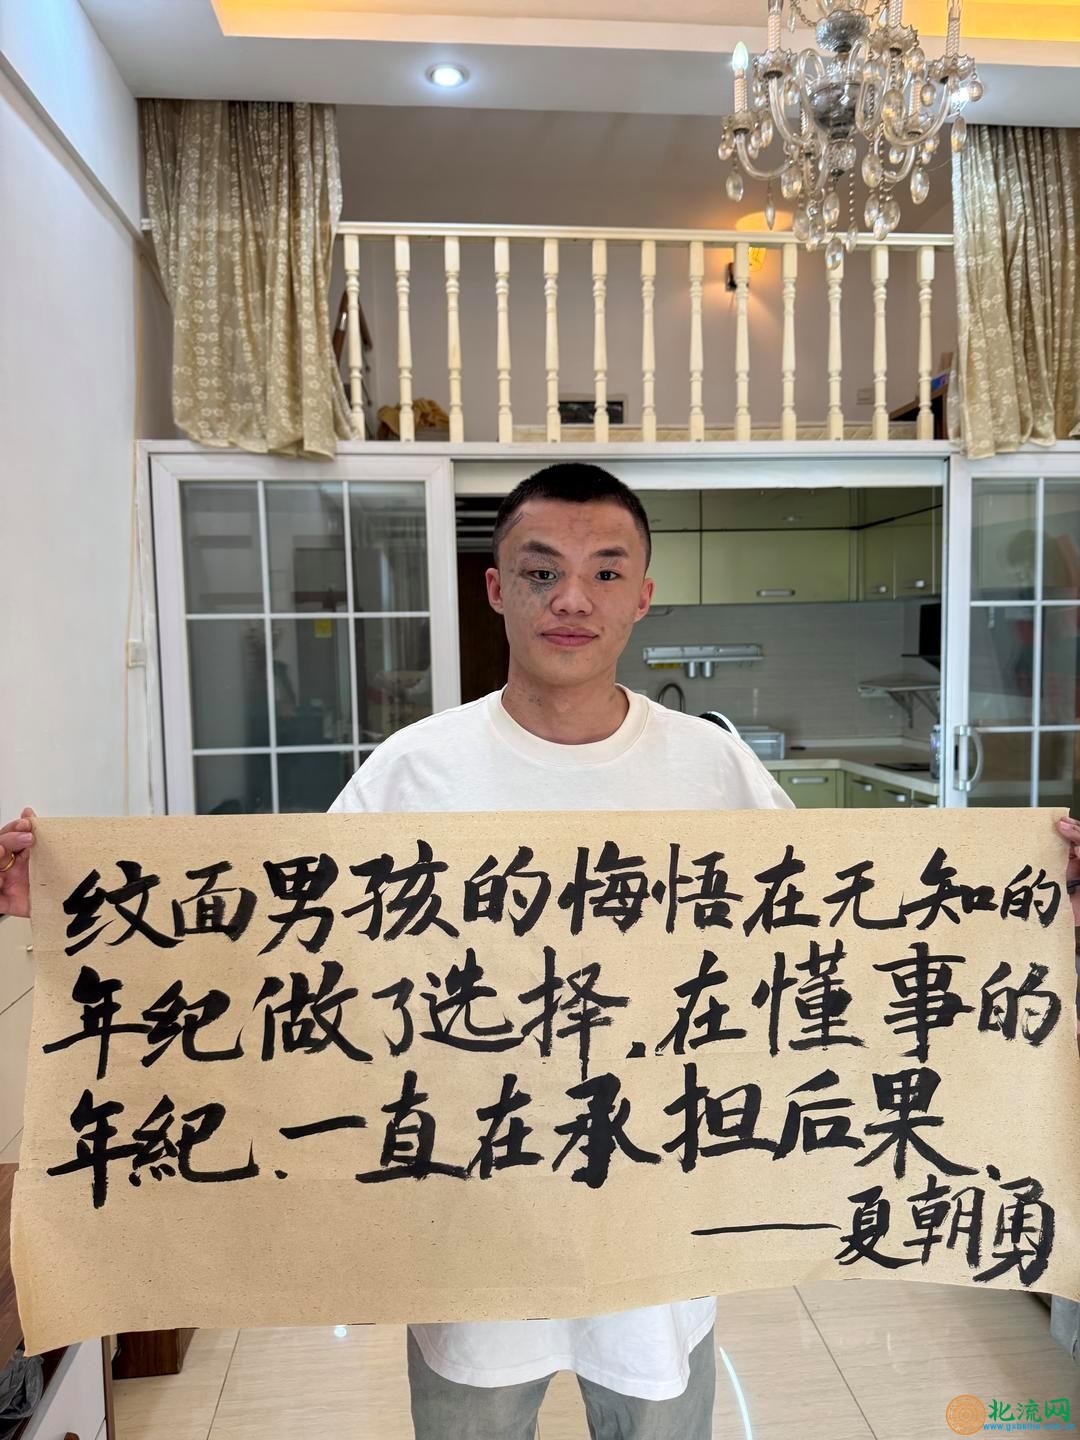 纹面男孩的悔悟在无知的
年纪做了选择.在懂事的
年紀.一直在承担后果.
——夏朝勇
北流网